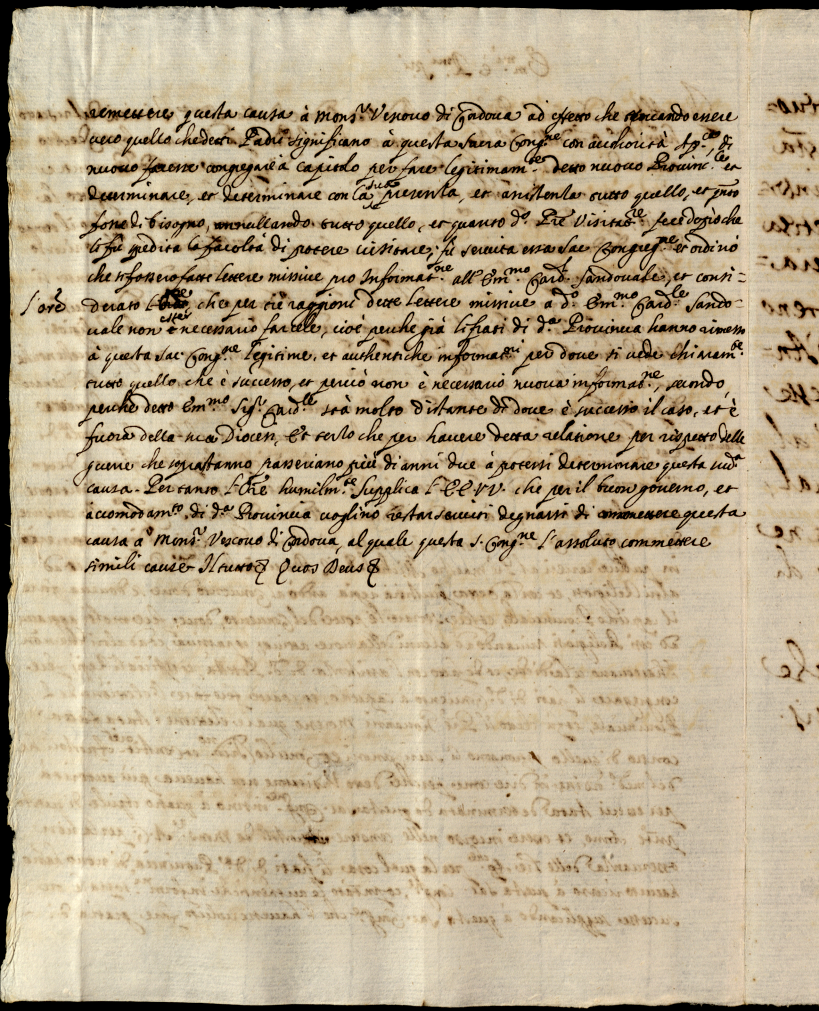 remettere questa causa à Mons.r Vescovo di Cordova ad effetto che essendo essere
vero quello che detti Padri significano à questa Sacra Cong.ne con authorità Ap.ca, di
nuovo facesse congregare à capitolo per fare legitimam.te detto nuovo Provinc.le et
determinare, et determinare con la sua presenza, et assistenza tutto quello, et q̃nto
fosse di bisogno, annullando tutto quello, et quanto d.o P̃re Visitat.re fece dopio che
li fù īpedita la facoltà di potere visitare, fù servita essa Sac. Congreg.ne et ordinò
che si fossero fatte lettere missive pro Informat.ne all' Em.mo Card.l Sandovale, et consi-
l'orẽ
derato che per tre raggioni dette lettere missive a d.o Em.mo Card.le Sando-
vale non è necessario farcele, cioè perche già li frati di d.a Provincia hanno rimesso
à questa Sac. Cong.ne legitime, et authentiche informat.ni per dove si vede chiaram.te
tutto quello che è successo, et perciò non è necessario nuova informat.ne, secondo,
perche detto Em.mo Sig.r Card.le stà molto distante di dove è successo il caso, et è
fuora della sua Diocesi, Et terzo che per havere detta relatione per rispetto delle
guerre che soprastanno passeriano più di anni due à potersi determinare questa sud.a
causa. Per tanto l'Orẽ humilm.te supplica l'EE.VV. che per il buon governo, et
accomodam.to di d.a Provincia voglino restar serviti degnarsi di commettere questa
causa a Mons.r Vescovo di Cordova, al quale questa S. Cong.ne l'assoluto commettere
simili cause. Il tutto Quos Deus